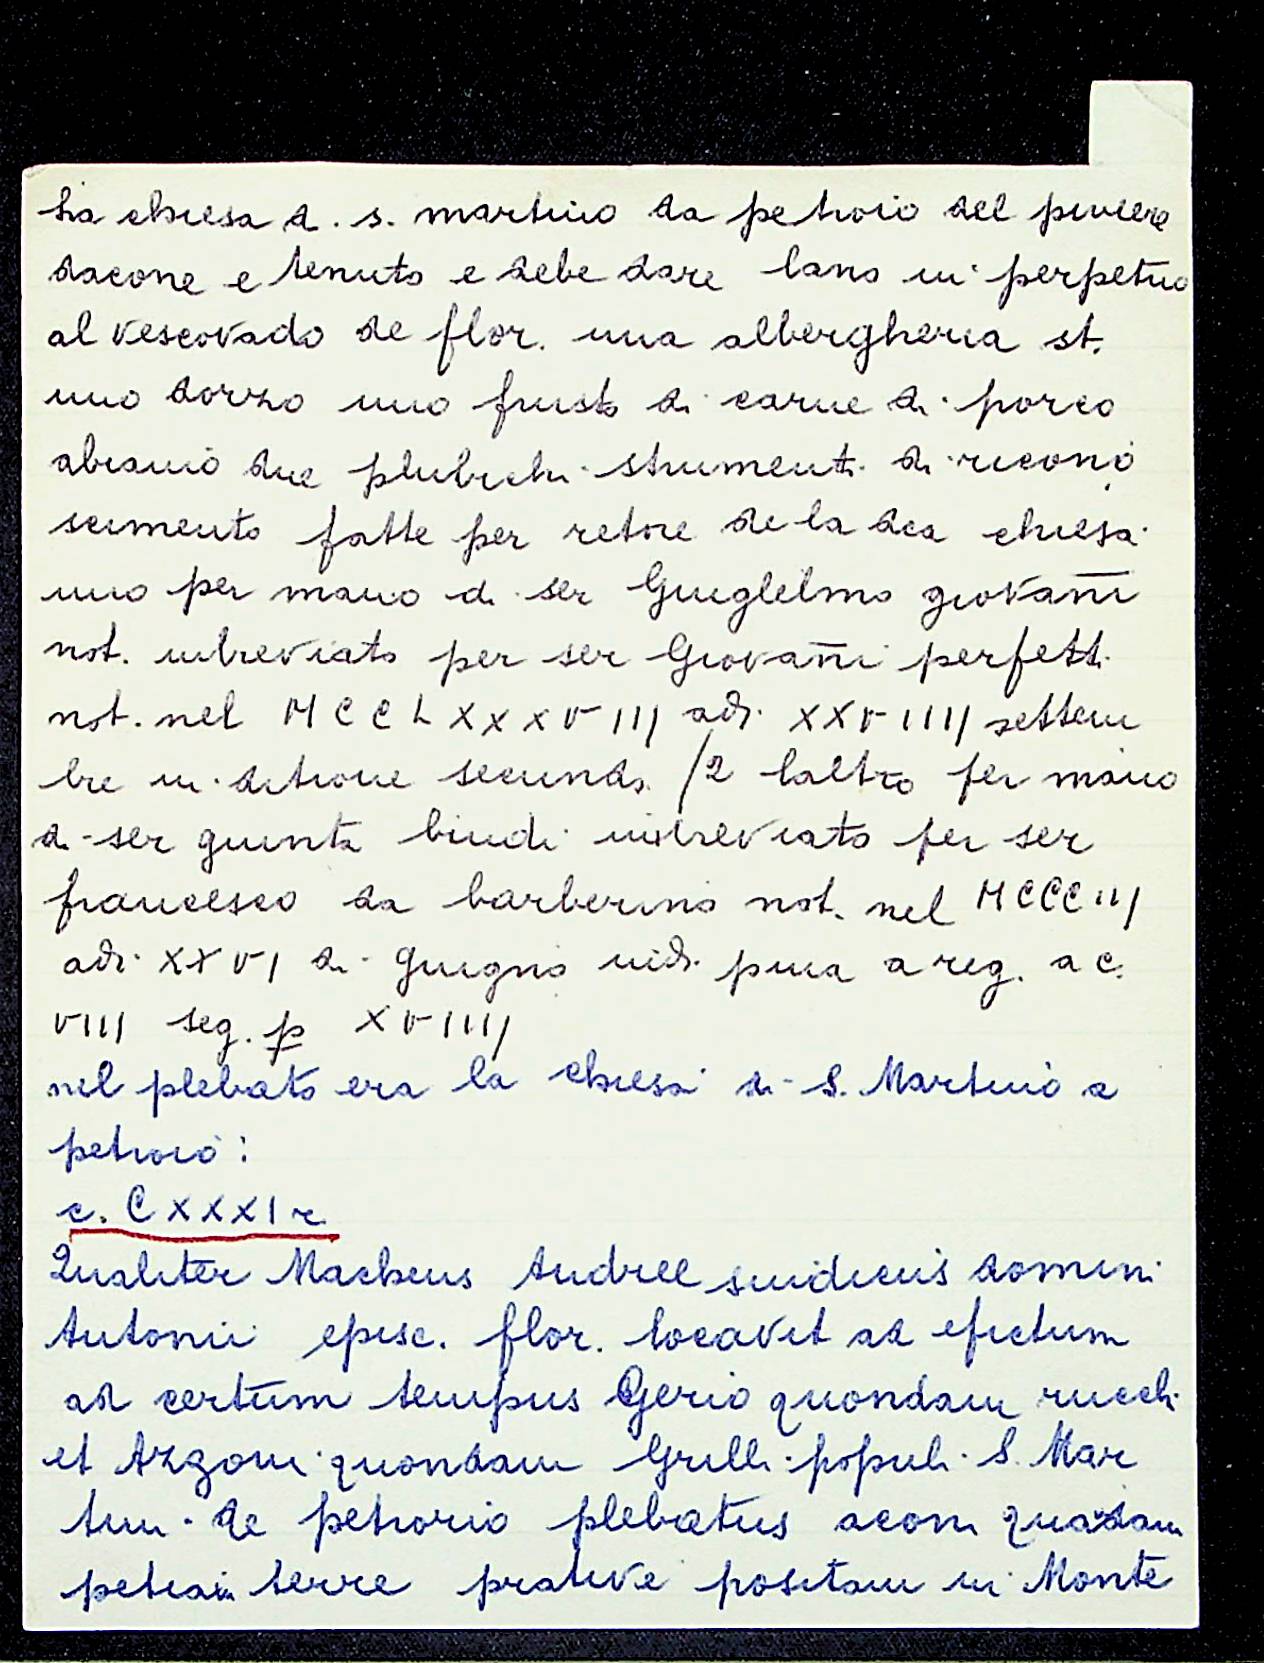 La chiesa di. s. martino da petroio del piviere
dacone e tenuto e debe dare lano in perpetuo
al vescovado de flor. una albergheria st.
uno dorzo uno frusto di carne di porco
abiamo due plubichi strumenti di ricono
scimento fatte per retore de la dca chiesa
uno per mano di ser Guiglelmo giovan̄i
not. inbreviato per ser Giovan̄i perfetti
not. nel MCCLXXXVIII adi XXVIIII settem
bre in ditione secunda /2 laltro per mano
di ser giunta bindi inbreviato per ser
francesco da barberino not. nel MCCCIII
adi XXVI di giugno indi. pima a reg. a c.
VIII seg. p XVIIII
nel plebato era la chiesa di S. Martino a
petroio:
c. CXXXI r
Qualiter Macheus Andree sindicus domini
Antonii episc. flor. locavit ad efictum
ad certum tempus Gerio quondam rucchi
et Azzoni quondam Grilli populi S. Mar
tini de petrorio plebatus aconi quadam
petiam terre prative positam in Monte